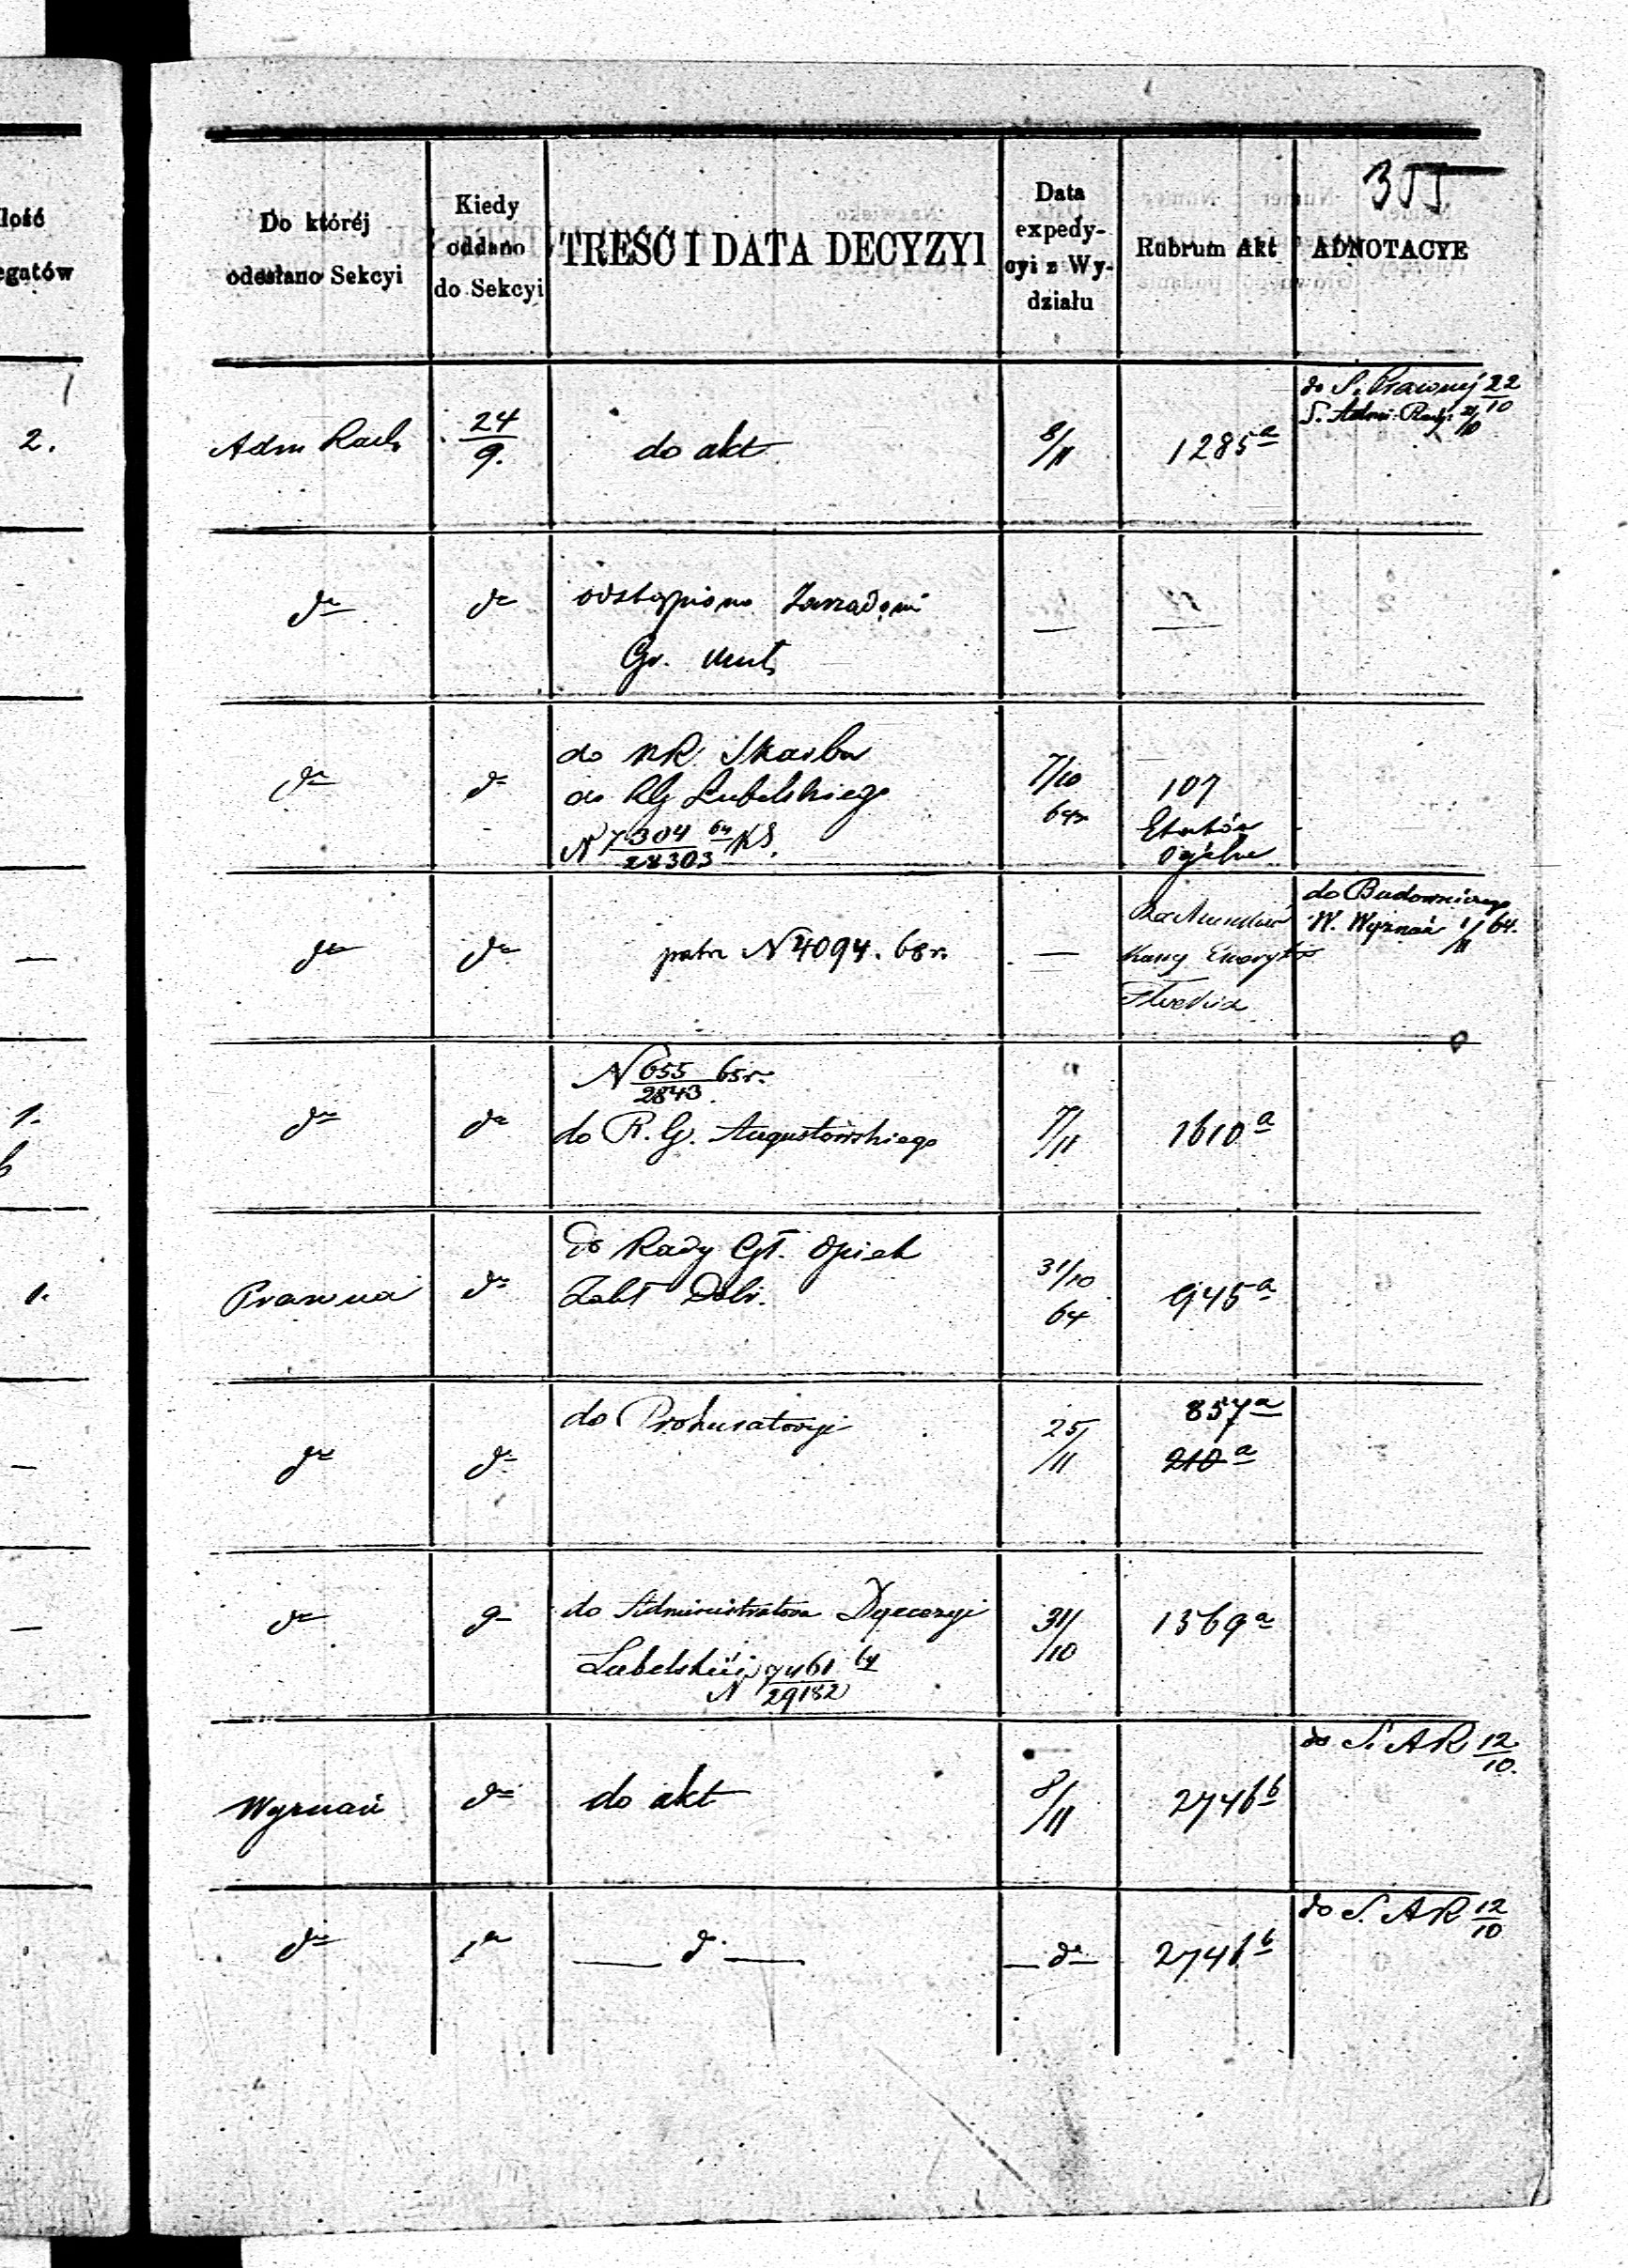 355
Ilość
egatów
Do któréj
odesłano Sekcyi
Kiedy
oddano
do Sekcyi
TREŚĆ I DATA DECYZYI
Data
expedy-
cyi z Wy-
działu
Rubrum Akt
ADNOTACYE
2.
Adm Rach
24/9.
do akt
8/11
1285a
do S. Prawnéj 22/10
S. Adm. Rach. 21/10
da
da
odstąpiono Zarządowi
—
—
da
da
do KR Skarbu
do RG Lubelskiego
N 7304/28303 64 KS.
7/10
64r
107
Etatów
Ogólne
—
da
da
patrz N 4094. 68r.
—
Kassy Emeryt
do Budowniczego
W. Wyznań 1/11 64.
1.
da
da
N 655/2843 65r.
do R. G. Augustowskiego
7/11
1610a
1.
Prawna
da
do Rady Gł. Opiek
Zakł Dobr.
31/10
64
945a
—
da
da
do Prokuratoryi
25/11
857a
210a
—
da
da
do Administratora Dyecezyi
Lubelskiéj
N 7461/29182 64
31/10
1369a
Wyznań
da
do akt
8/11
2746b
do S. AR 12/10.
da
da
— da —
— da —
2746b
do S. AR 12/10